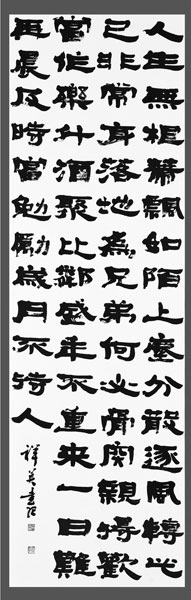 人生無根蒂飄如陌上塵分散逐風轉此
已非常身落地為兄弟何必骨肉親得歡
當作樂斗酒聚比鄰盛年不重來一日難
再晨及時當勉勵歲月不待人